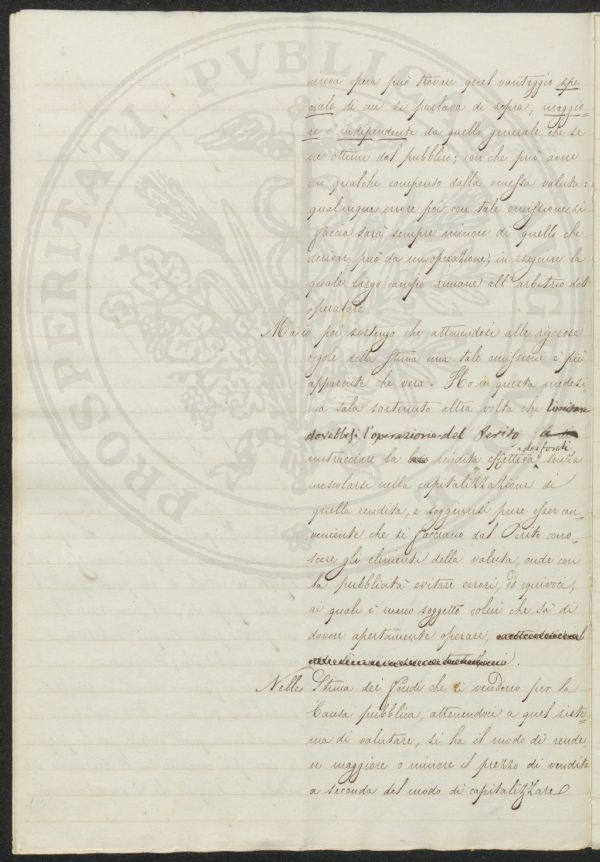 nuova opera può trovare quel vantaggio spe=
ciale di cui si parlava di sopra, maggio=
re e independente da quello generale che se
ne ottiene dal pubblico; con che può avere
un qualche compenso dalla omessa valuta:
qualunque errore poi con tale omissione si
faccia sarà sempre minore di quello che
derivar può da un operazione, in eseguire la
quale largo campo rimane all'arbitrio dell'
operatore.
Ma io poi sostengo che attenendosi alle rigorose
regole della stima una tale omissione è più
apparente che vera. Ho in questa medesi=
ma sala sostenuto altra volta che limitare
dovrebbesi l'operazione del Perito a
rintracciare la rendita effettiva dei fondi senza
mescolarsi nella capitalizzazione di
quella rendita, e soggiunsi pure esser con=
veniente che si facciano dal Perito cono=
scere gli elementi della valuta, onde con
la pubblicità evitare errori, ed equivoci,
ai quali è meno soggetto colui che sà di
dovere apertamente operare,
Nella Stima dei fondi che si vendono per la
Causa pubblica, attenendoci a quel siste=
ma di valutare, si ha il modo di rende=
re maggiore o minore il prezzo di vendita
a seconda del modo di capitalizzare
PROSPERITATI PVBLICAE AVGENDAE